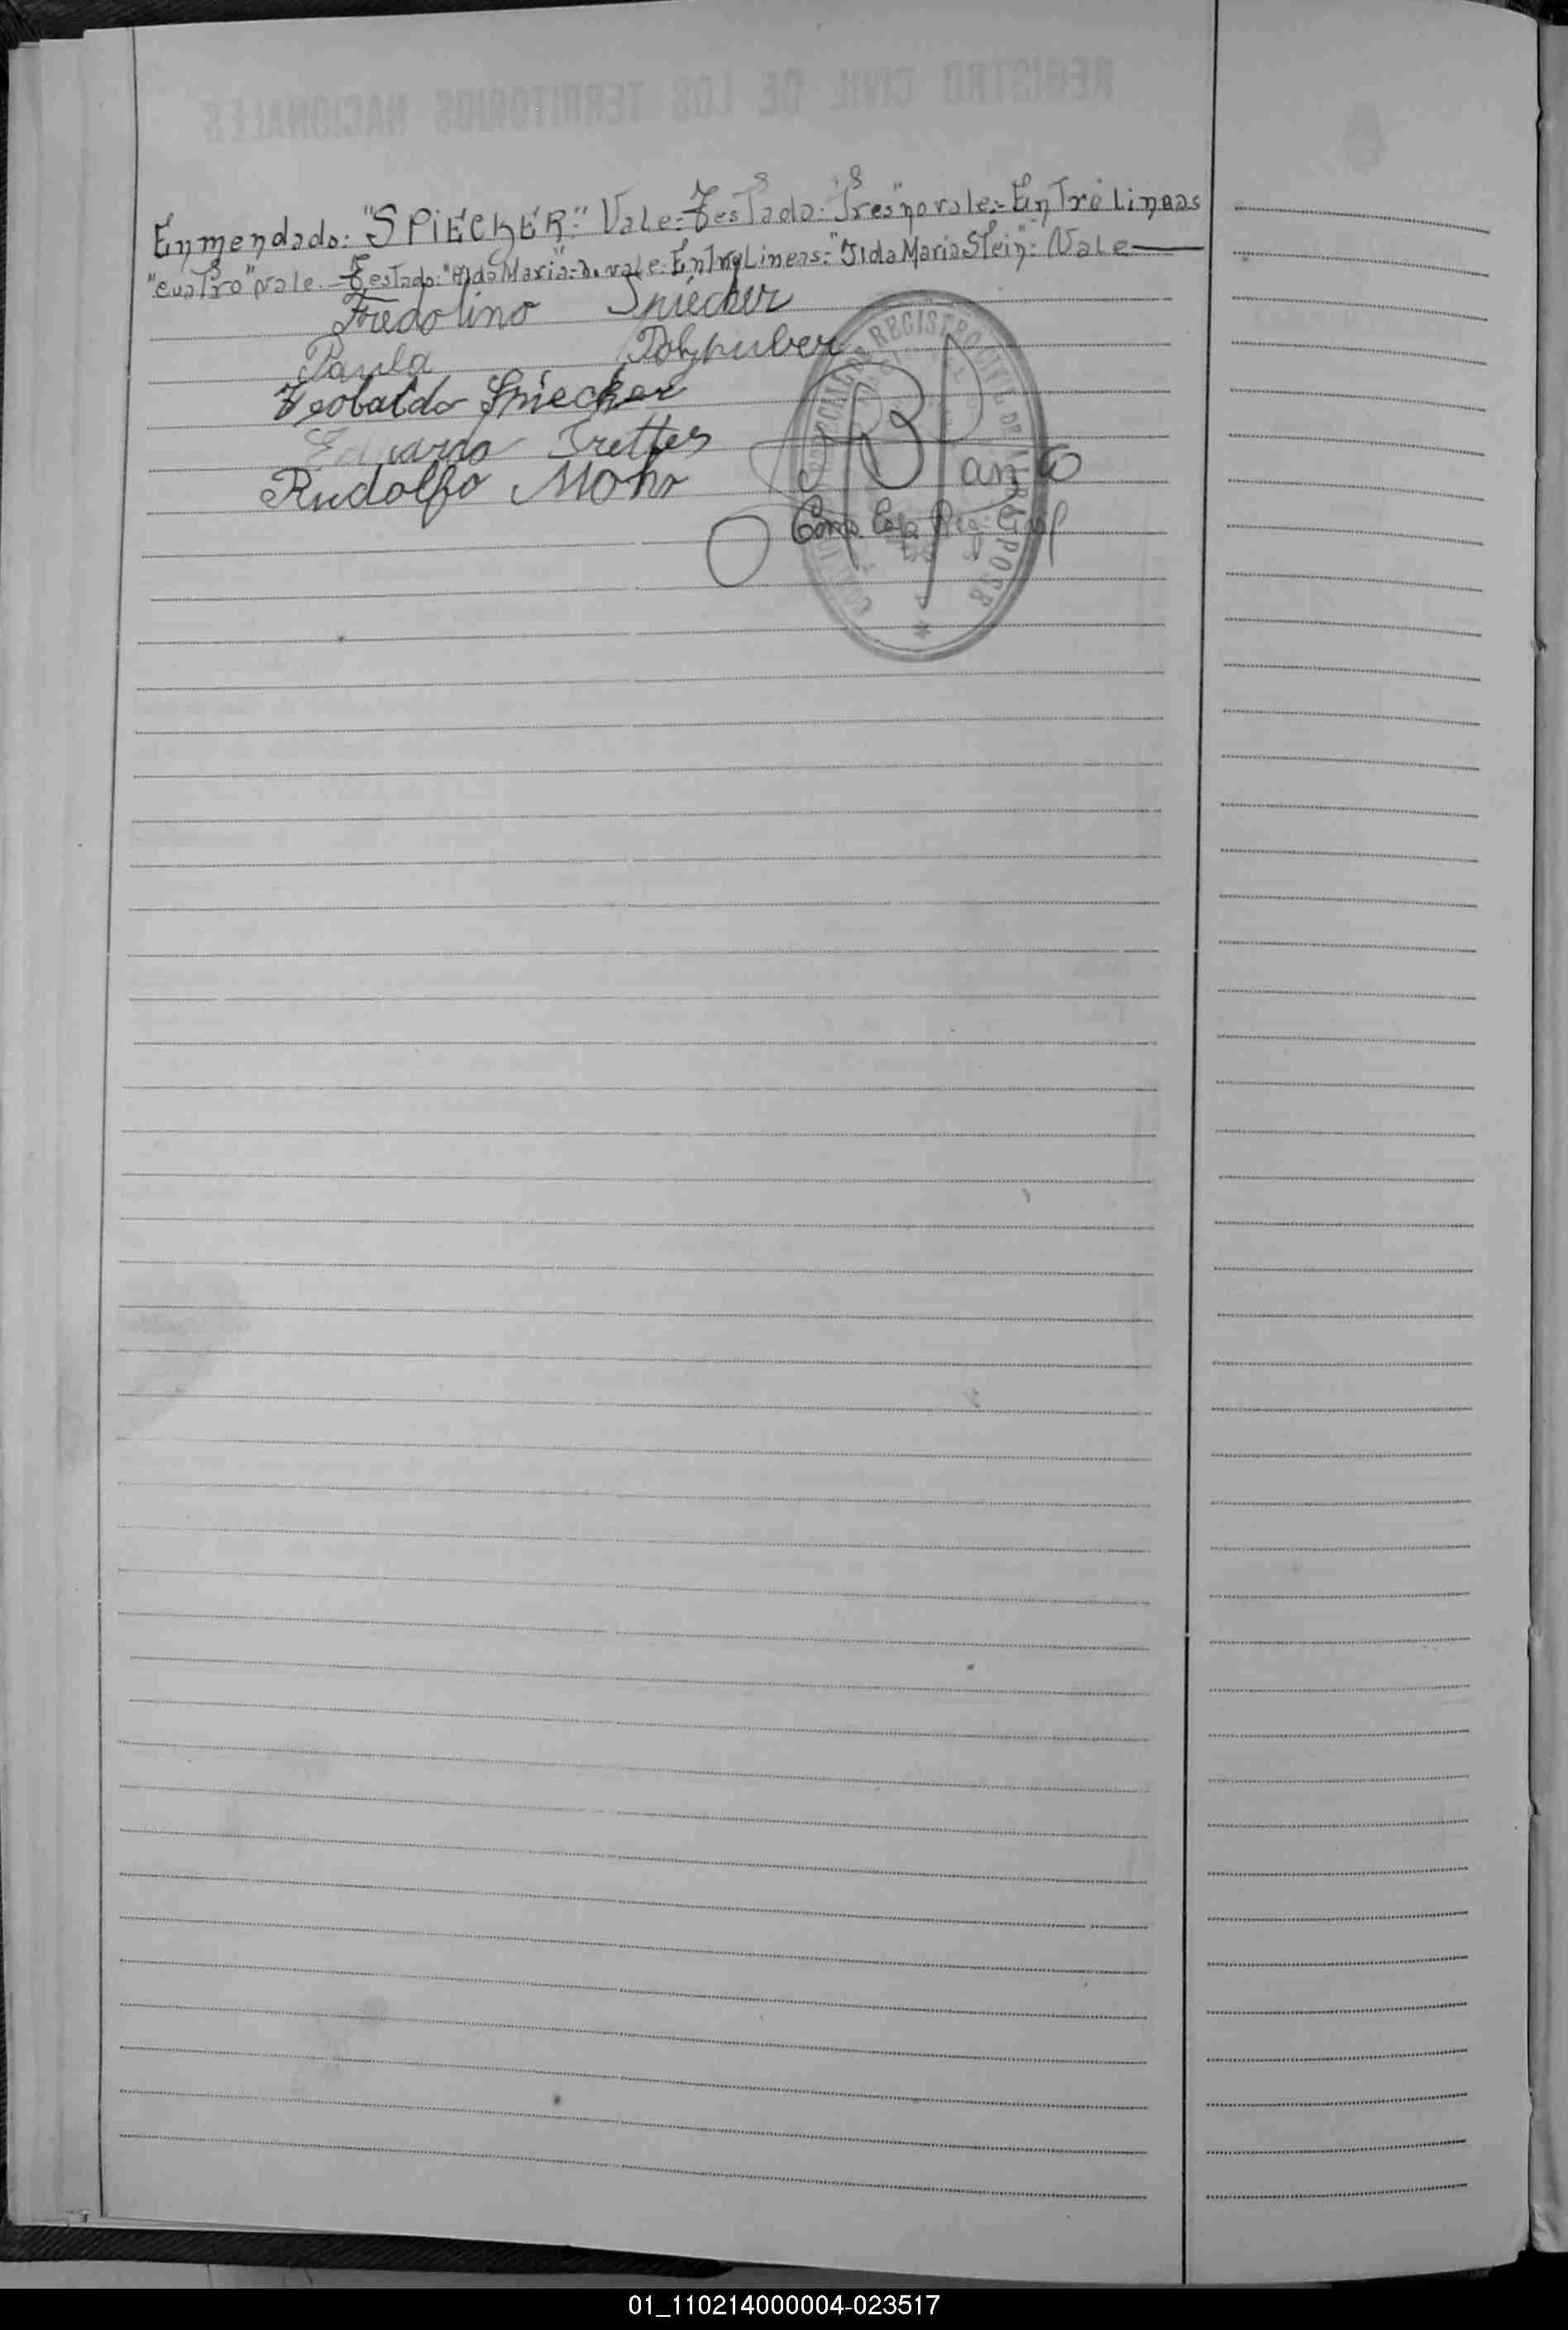 REGISTRO CIVIL DE LOS TERRITORIOS NACIONALES
Enmendado: "SPiECKER": Vale = Testado: "Tres" no vale = Entre Lineas
"cuatro" vale. Testado: Maria" = no vale = Entre Lineas = "Ilda Maria Stein": Vale
Fredolino Spiecker
Paula
Teobaldo Spiecker
Eduardo Trettes
Rudolfo Mohr
REGISTRO CIVIL DE
Reg. Civil
01_110214000004-023517